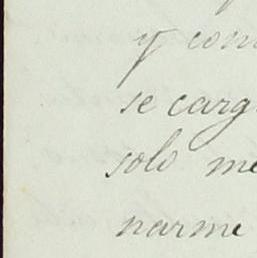 y com
se carg
solo me
narme